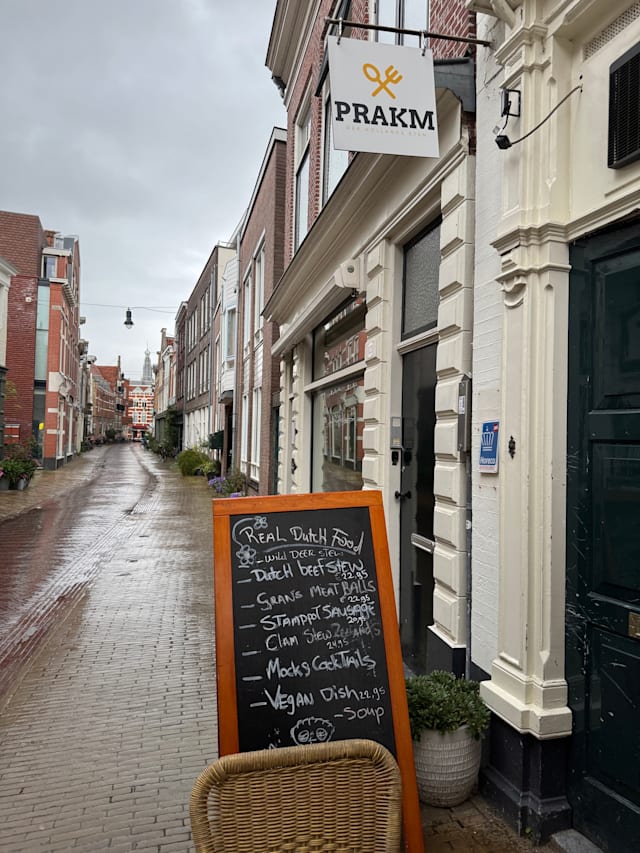 PRAKM
REAL DUTCH FOOD
- WILD DEER STEW
- DUTCH BEEFSTEW
22.95
- GRANS MEATBALLS
22.95
- STAMPPOT SAUSAGE
- CLAM STEW ZEELANDS
24.95
- MOCKS COCKTAILS
- VEGAN DISH 22.95
- SOUP